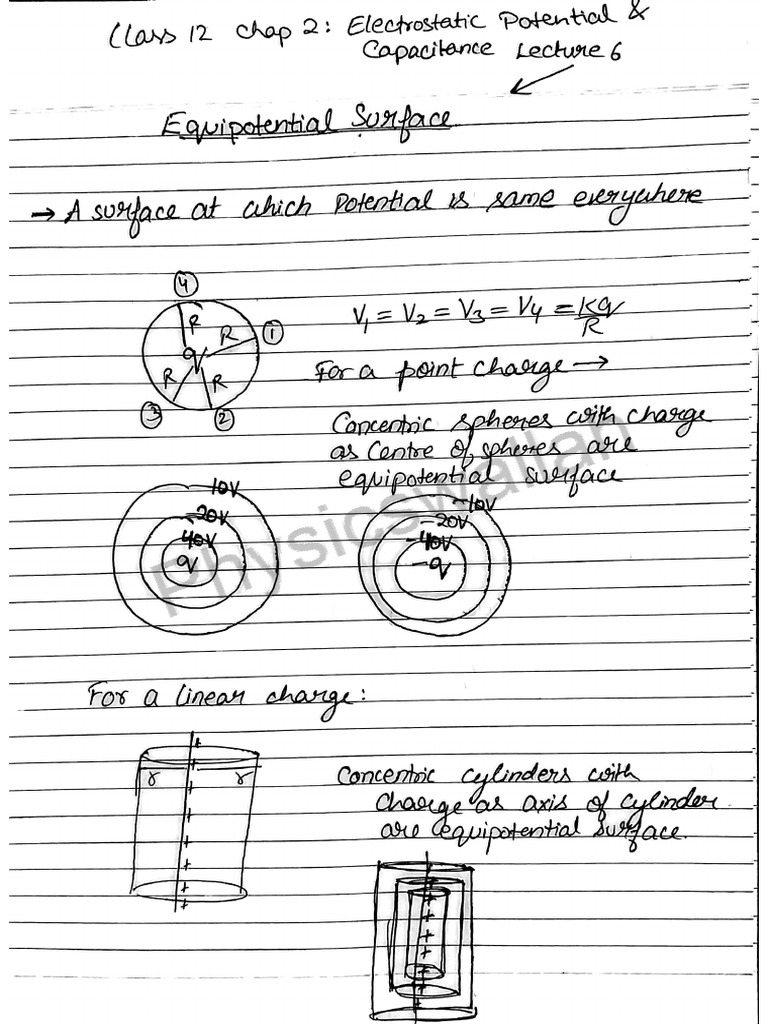 Class 12 Chap 2: Electrostatic Potential &
Capacitance Lecture 6
Equipotential Surface
→ A surface at which Potential is same everywhere
4
R
R 1
q
R R
3 2
V₁ = V₂ = V₃ = V₄ = Kq/R
For a point charge →
Concentric spheres with charge
as Centre of spheres are
equipotential surface
10V
20V
40V
q
-10V
-20V
-40V
-q
Physicswallah
For a linear charge:
+
r + r
+
+
+
+
+
+
+
Concentric cylinders with
charge as axis of cylinder
are equipotential surface.
+
+
+
+
+
+
+
+